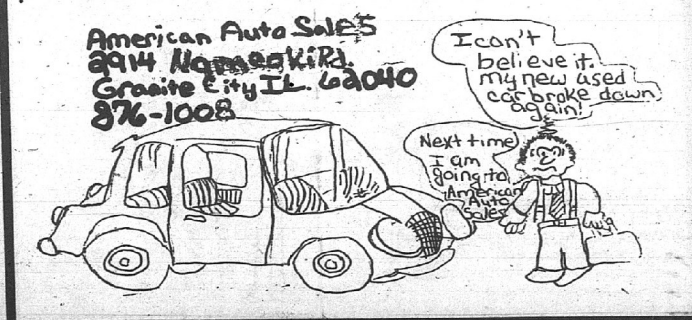 American Auto Sales
2914 Nameoki Rd.
Granite City IL. 62040
876-1008
I can't
believe it.
my new used
car broke down
again!
Next time
I am
going to
American
Auto
Sales